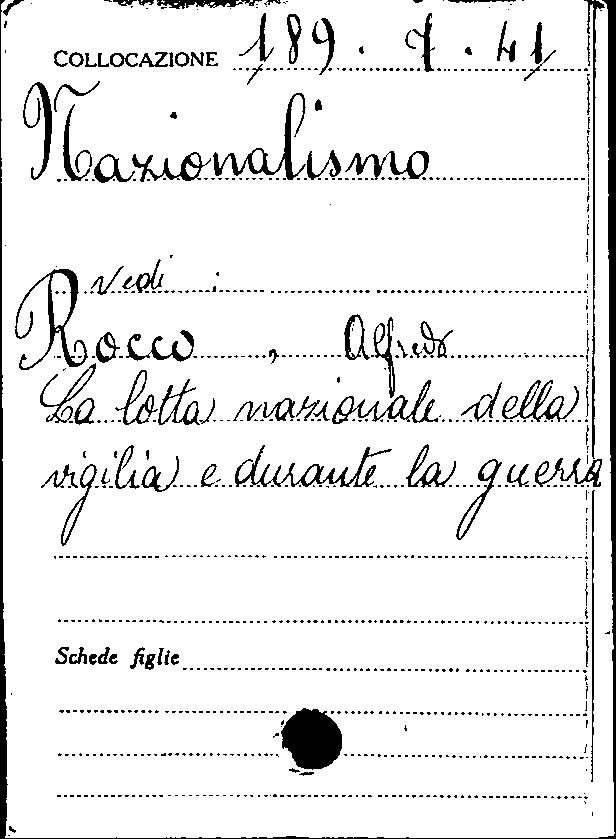 COLLOCAZIONE 189. 7. 41
Nazionalismo
Vedi :
Rocco, Alfredo
La lotta nazionale della
vigilia e durante la guerra
Schede figlie